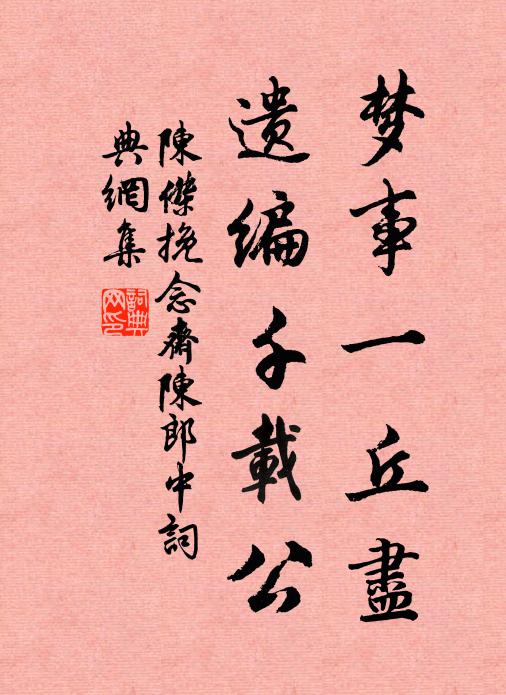 梦事一丘盡
遺编千載公
陳傑挽念齋陳郎中詞
典網集
詞典网印